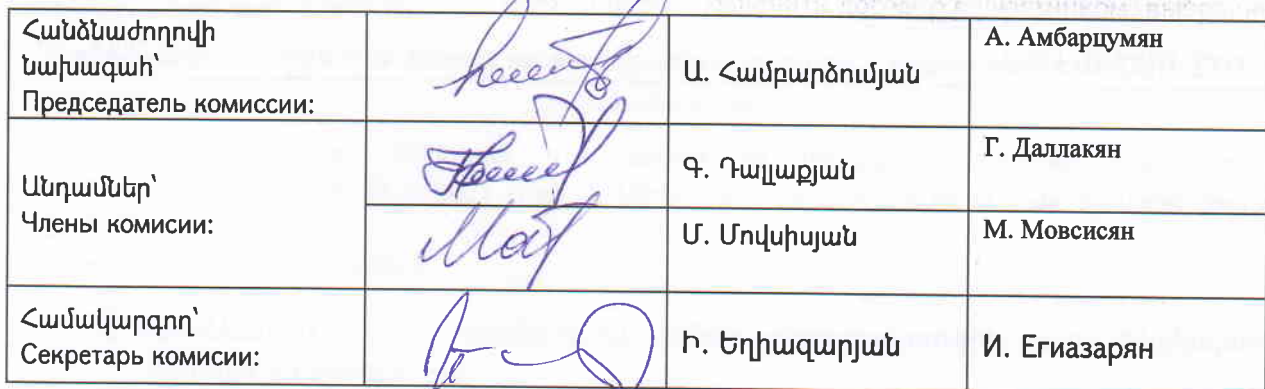 Հանձնաժողովի
նախագահ՝
Председатель комиссии:
Ա. Համբարձումյան
А. Амбарцумян
Անդամներ՝
Члены комисии:
Գ. Դալլաքյան
Г. Даллакян
Մ. Մովսիսյան
М. Мовсисян
Համակարգող՝
Секретарь комисии:
Ի. Եղիազարյան
И. Егиазарян